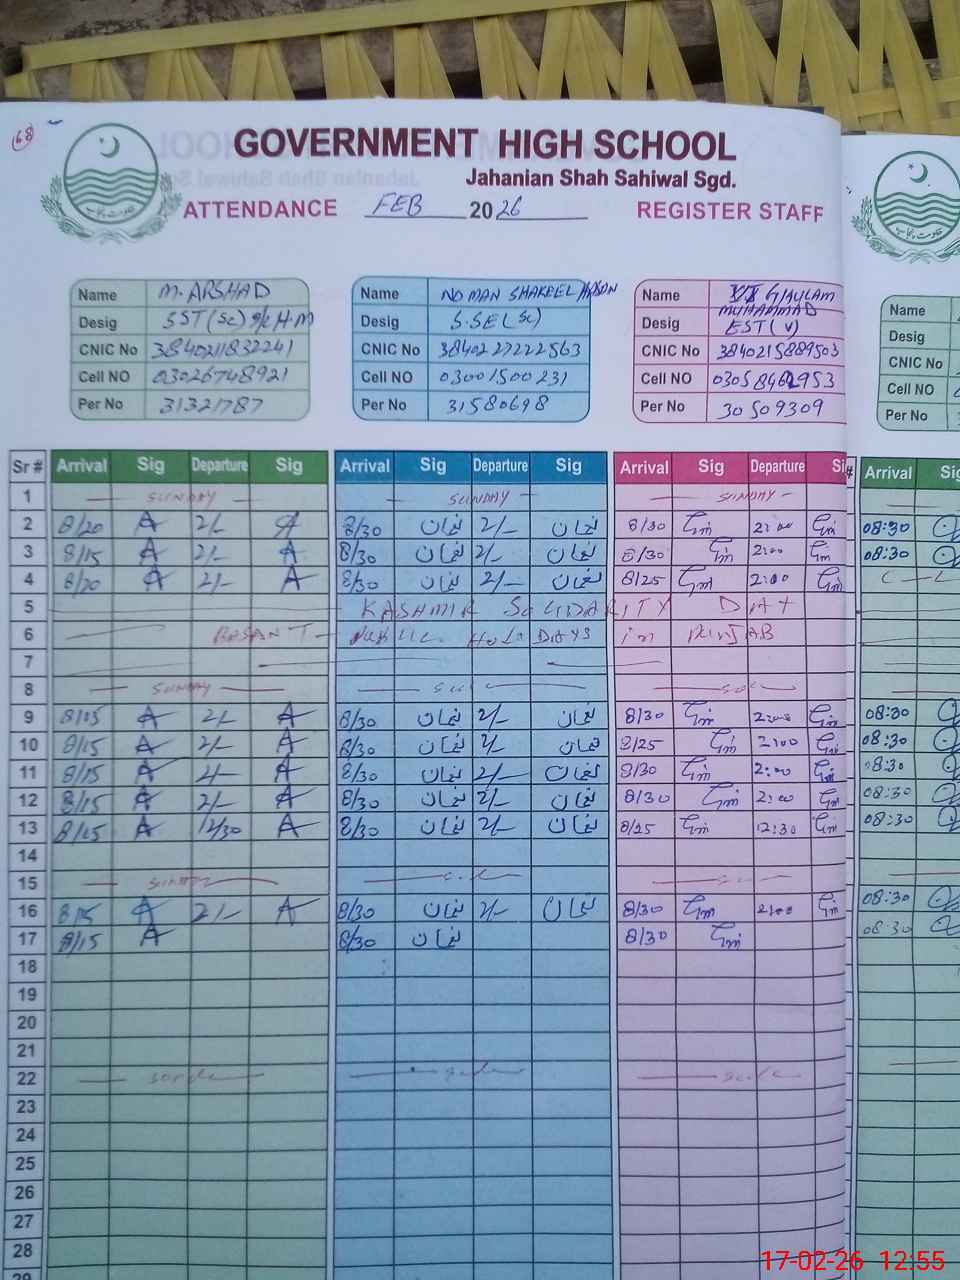 68
GOVERNMENT HIGH SCHOOL
Jahanian Shah Sahiwal Sgd.
ATTENDANCE FEB 2026 REGISTER STAFF
حکومت پنجاب
Name M. ARSHAD Name NOMAN SHAKEEL Name GHULAM MUHAMMAD Name
Desig SST (Sc) H.M Desig S.SE (Sc) Desig EST (V) Desig
CNIC No 3840211832241 CNIC No 3840227222563 CNIC No 3840215889503 CNIC No
Cell NO 03026748921 Cell NO 03001500231 Cell NO 03058462953 Cell NO
Per No 31321787 Per No 31580698 Per No 30509309 Per No
Sr # Arrival Sig Departure Sig Arrival Sig Departure Sig Arrival Sig Departure Si # Arrival Sig
1 SUNDAY SUNDAY SUNDAY
2 8/20 A 2/- A 8/30 نعمان 2/- نعمان 8/30 2:00 08:30
3 8/15 A 2/- A 8/30 نعمان 2/- نعمان 8/30 2:00 08:30
4 8/20 A 2/- A 8/30 نعمان 2/- نعمان 8/25 2:00
5 KASHMIR SOLIDARITY DAY
6 BASANT - PUBLIC HOLIDAYS in PUNJAB
7
8 SUNDAY
9 8/15 A 2/- A 8/30 نعمان 2/- نعمان 8/30 2:00 08:30
10 8/15 A 2/- A 8/30 نعمان 2/- نعمان 8/25 2:00 08:30
11 8/15 A 2/- A 8/30 نعمان 2/- نعمان 8/30 2:00 08:30
12 8/15 A 2/- A 8/30 نعمان 2/- نعمان 8/30 2:00 08:30
13 8/15 A 12/30 A 8/30 نعمان 2/- نعمان 8/25 12:30 08:30
14
15
16 8/15 A 2/- A 8/30 نعمان 2/- نعمان 8/30 2:00 08:30
17 8/15 A 8/30 نعمان 8/30 08:30
18
19
20
21
22
23
24
25
26
27
28
29
17-02-26 12:55